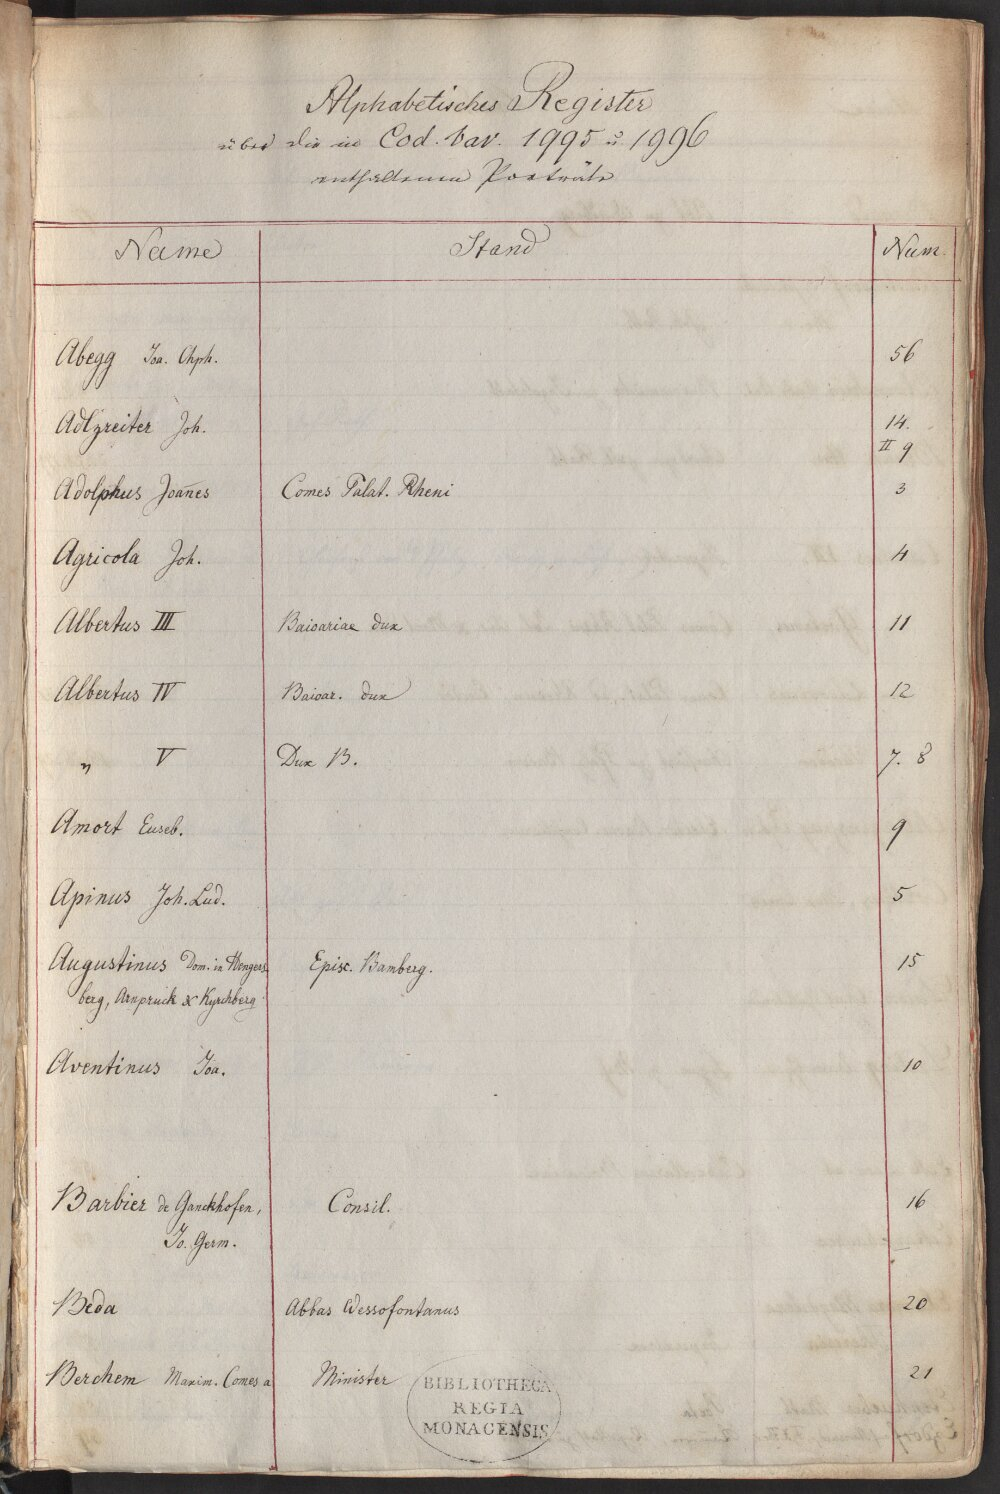 Alphabetisches Register
über die in Cod. bav. 1995 u 1996
enthaltenen Porträte
Name Stand Num.
Abegg Joa. Chph. 56
Adlzreiter Joh. 14.
II 9
Adolphus Joānes Comes Palat. Rheni 3
Agricola Joh. 4
Albertus III Baioariae dux 11
Albertus IV Baioar. dux 12
„ V Dux B. 7. 8
Amort Euseb. 9
Apinus Joh. Lud. 5
Augustinus Dom. in Mengers Episc. Bamberg. 15
berg, Arnpruck & Kyrchberg
Aventinus Joa. 10
Barbier de Ganckhofen, Consil. 16
Jo. Germ.
Beda Abbas Wessofontanus 20
Berchem Maxim. Comes a Minister 21
BIBLIOTHECA
REGIA
MONACENSIS